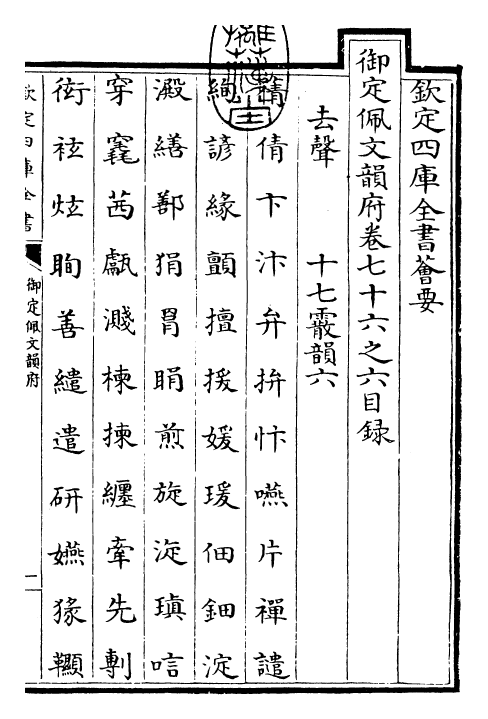 欽定四庫全書薈要
御定佩文韻府卷七十六之六目録
去聲 十七霰韻六
精倩卞汴弁拚忭嚥片禪譴
絢諺緣顫擅援媛瑗佃鈿淀
澱繕鄯狷罥睊煎旋淀瑱唁
穿竁茜甗濺楝揀纏牽先剸
衒袨炫眴善繾遣研嬿猭韅
欽定四庫全書
御定佩文韻府
一